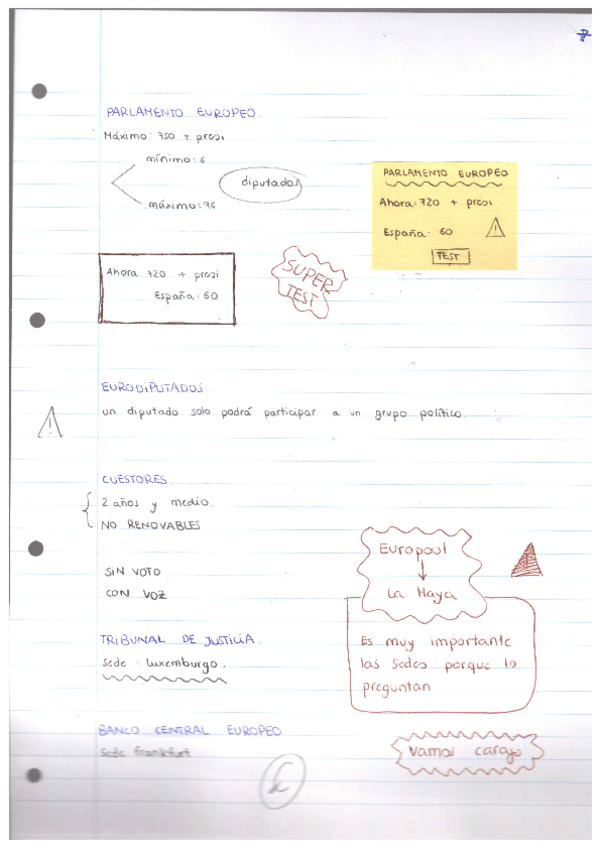 7
PARLAMENTO EUROPEO.
Máximo: 750 + presi
mínimo: 6
diputados
máximo: 96
PARLAMENTO EUROPEO
Ahora: 720 + presi
España: 60
TEST
Ahora 720 + presi
España: 60
SUPER
TEST
EURODIPUTADOS
un diputado solo podrá participar a un grupo político.
CUESTORES
2 años y medio.
NO RENOVABLES
SIN VOTO
CON VOZ
Europoul
La Haya
TRIBUNAL DE JUSTICIA.
Sede: Luxemburgo.
Es muy importante
las sedes porque lo
preguntan
BANCO CENTRAL EUROPEO
Sede frankfurt
Vamos carajo